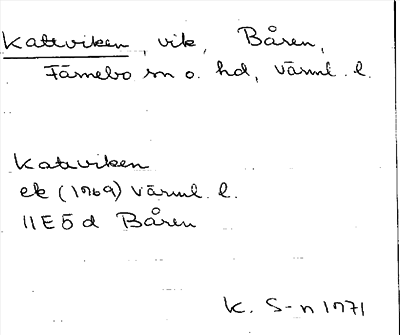 Katteviken, vik, Båren,
Färnebo sn o. hd, Värml. l.
Katteviken
ek (1969) Värml. l.
11E5d Båren
K. S-n 1971